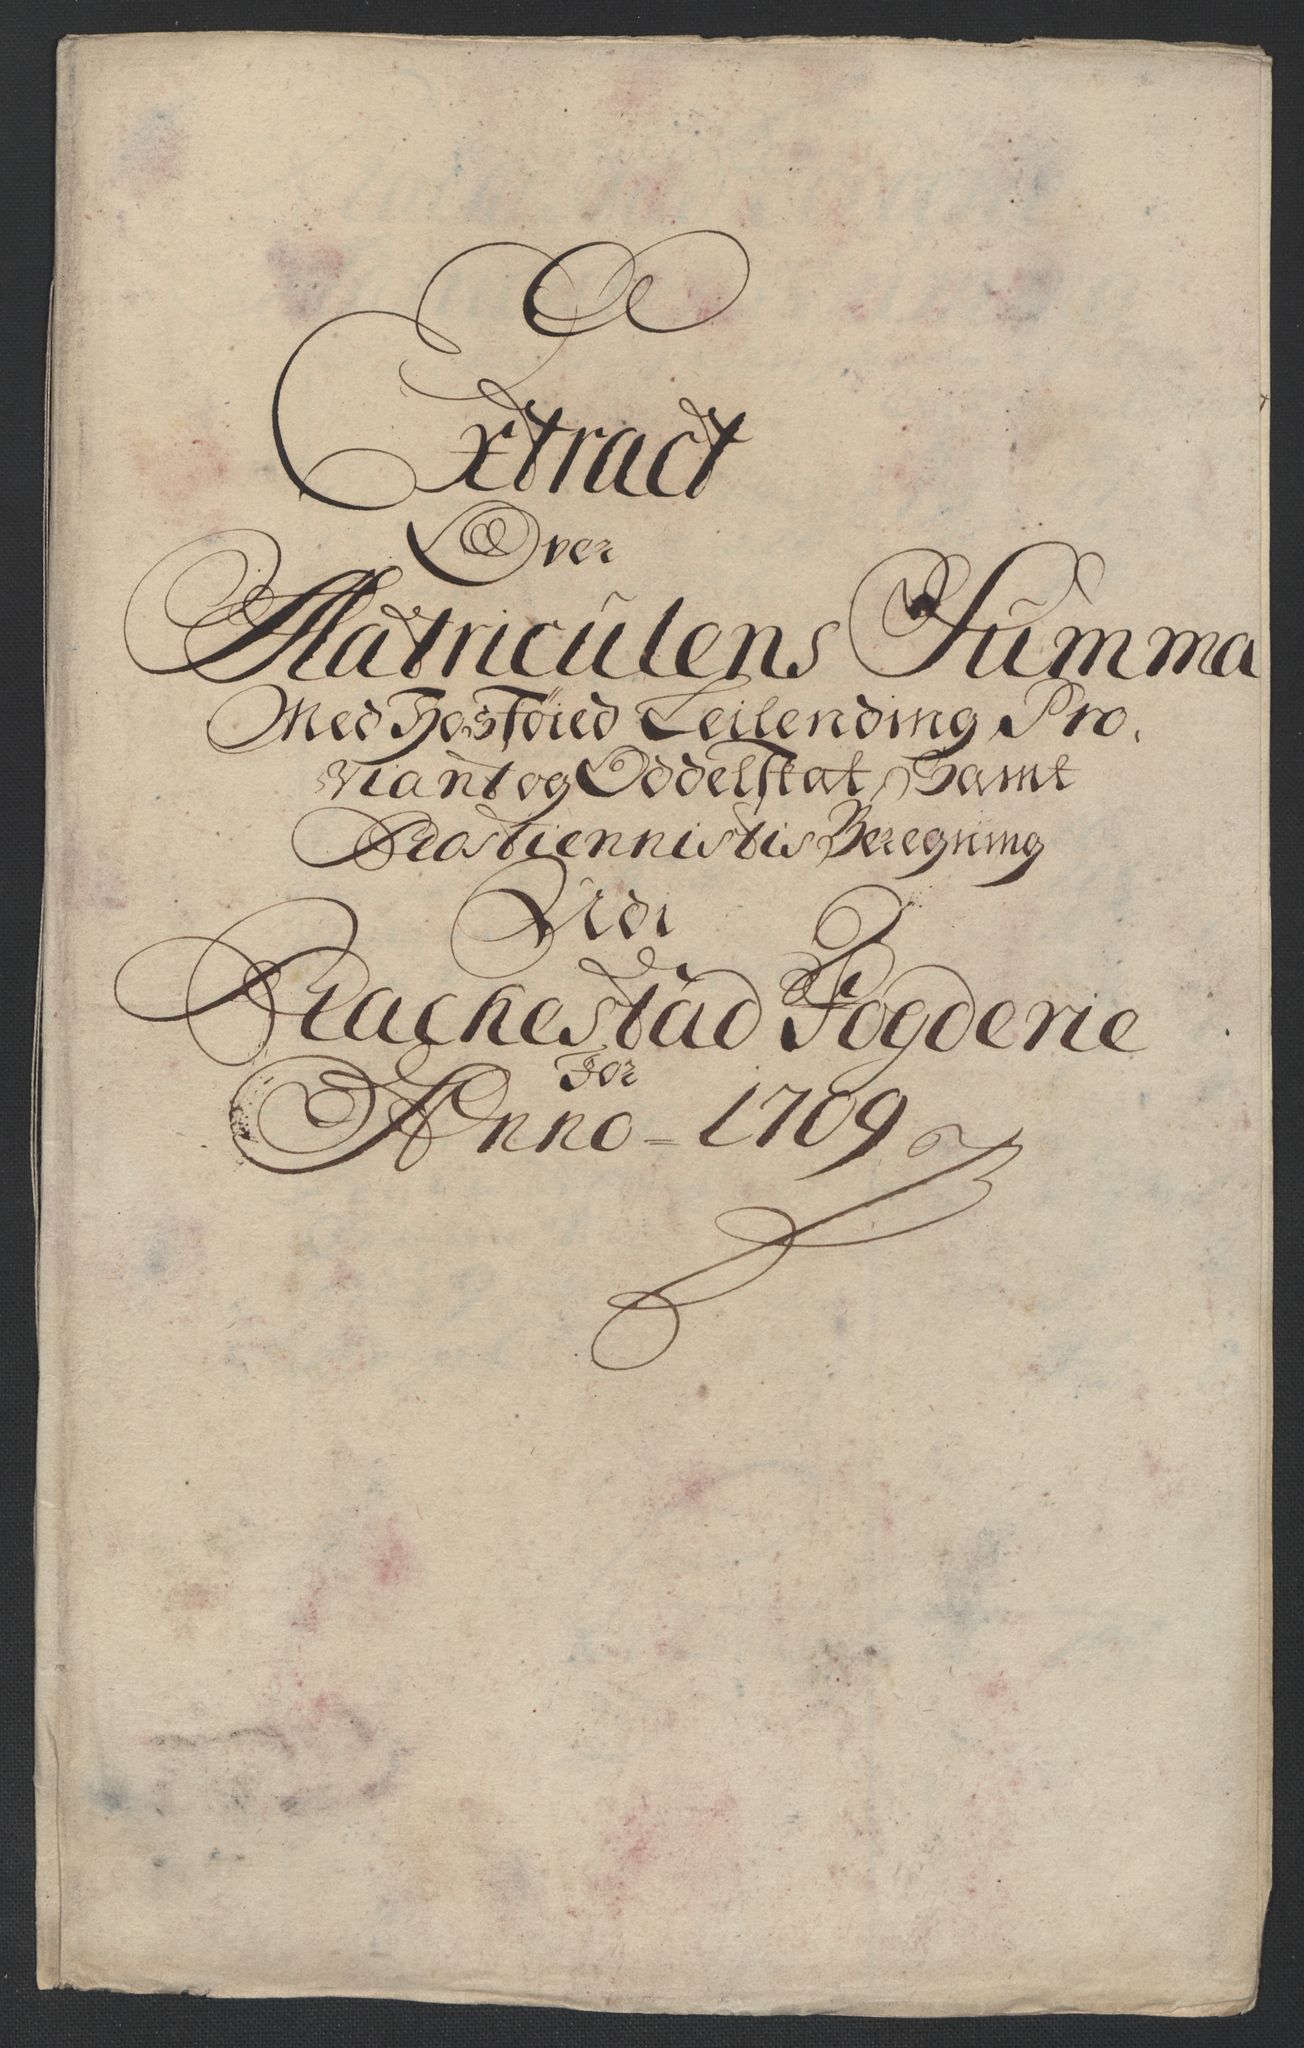 Extract
Over
Matriculens Summa
Med Hosföied Leilending Pro,
viant og Oddelskat, Samt
Rostiennistis Beregning
Udi
Rackestad Fogderie
For
Anno - 1709